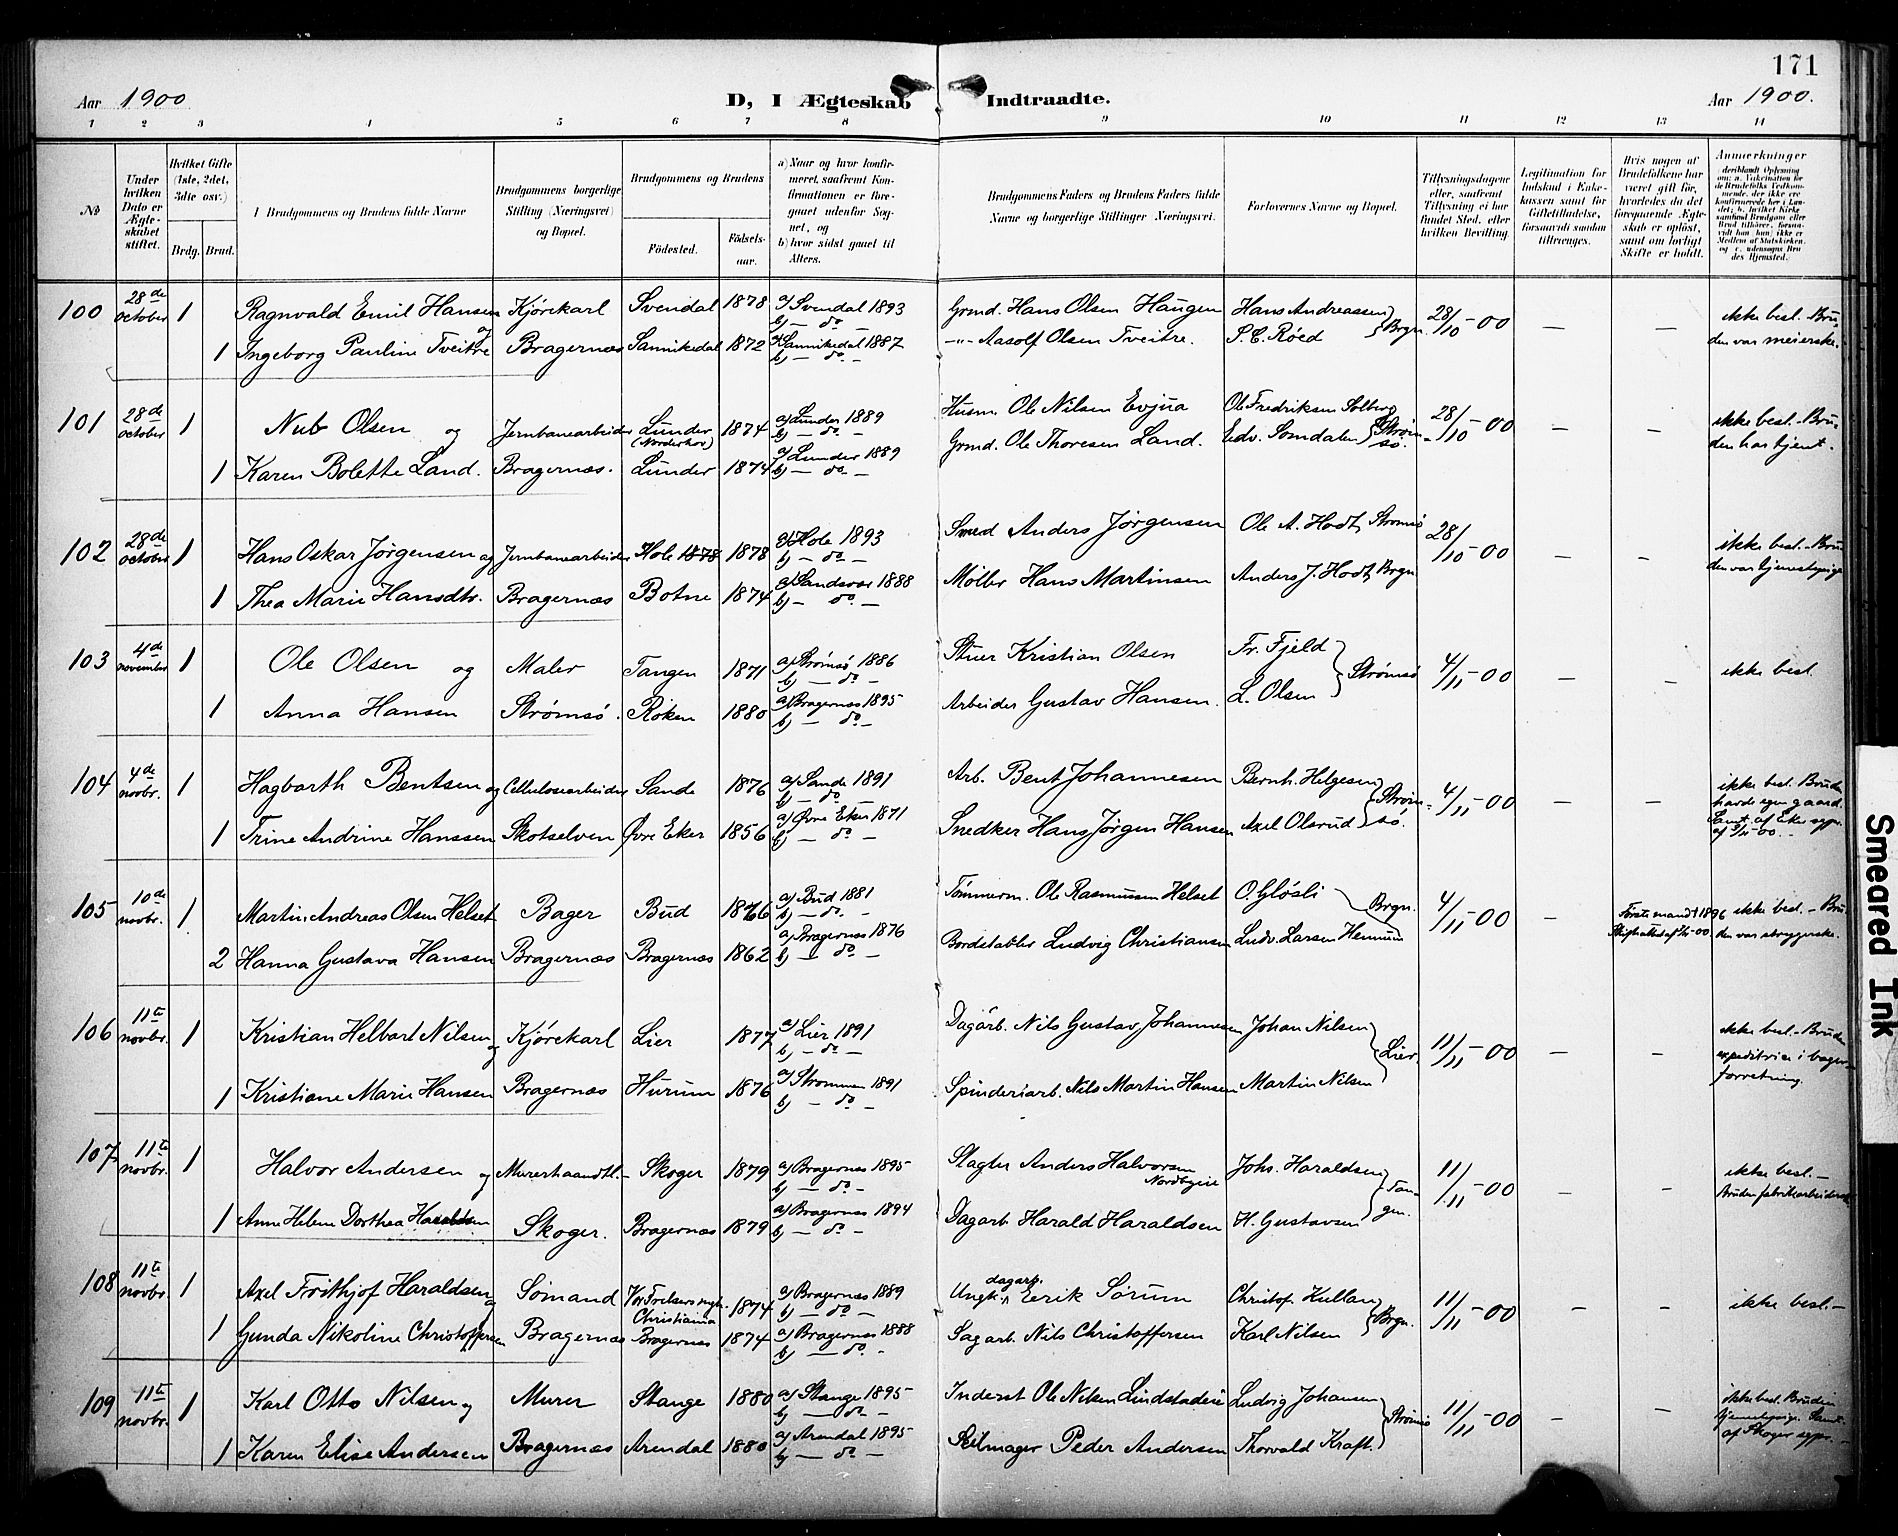 171
Aar 1900
D, I Ægteskab Indtraadte.
Aar 1900.
1 2 3 4 5 6 7 8 9 10 11 12 13 14
№
Under hvilken Dato er Ægteskabet stiftet.
Hvilket Gifte (1ste, 2det, 3die osv.)
Brdg. Brud.
Brudgommens og Brudens fulde Navne
Brudgommens borgerlige Stilling (Næringsvei) og Bopæl.
Brudgommens og Brudens
Fødested. Fødselsaar.
a) Naar og hvor konfirmeret, saafremt Konfirmationen er foregaaet udenfor Sognet, og
b) hvor sidst gaaet til Alters.
Brudgommens Faders og Brudens Faders fulde Navne og borgerlige Stillinger Næringsvei.
Forlovernes Navne og Bopæl.
Tillysningsdagene eller, saafremt Tillysning ei har fundet Sted, efter hvilken Bevilling.
Legitimation for Indskud i Enkekassen samt for Giftetilladelse, forsaavidt saadan tiltrænges.
Hvis nogen af Brudefolkene har været gift før, hvorledes da det foregaaende Ægteskab er opløst, samt om lovligt Skifte er holdt.
Anmerkninger
100 28de october 1 Ragnvald Emil Hansen og Kjørekarl Svendal 1878 a) Svendal 1893 b) — do — Grmd. Hans Olsen Haugen Hans Andreassen } Brgn. 28/10-00 — — ikke besl. Bru-
1 Ingeborg Pauline Tveitre Bragernæs Sannikedal 1872 a) Sannikedal 1887 b) — do — —"— Aasolf Olsen Tveitre. P. C. Røed den var meierske.
101 28de october 1 Nub Olsen og Jernbanearbeider Lunder (Norderhov) 1874 a) Lunder 1889 b) — do — Husm. Ole Nilsen Evjua Ole Fredriksen Solberg } Strømsø. 28/10-00 — — ikke besl. Bru-
1 Karen Bolette Land. Bragernæs. Lunder 1874 a) Lunder 1889 b) — do — Grmd. Ole Thoresen Land. Edv. Somdalen den har tjent.
102 28de october 1 Hans Oskar Jørgensen og Jernbanearbeider Hole 1878 1878 a) Hole 1893 b) — do — Smed Anders Jørgensen Ole A. Hodt, Strømsø 28/10-00 — — ikke besl. Bru-
1 Thea Marie Hansdtr. Bragernæs Botne 1874 a) Sandsvær 1888 b) — do — Møller Hans Martinsen Anders J. Hodt, Brgn. den var tjenestepige
103 4de november 1 Ole Olsen og Maler Tangen 1871 a) Strømsø 1886 b) — do — Stuer Kristian Olsen Fr. Fjeld } Strømsø 4/11-00 — — ikke besl.
1 Anna Hansen Strømsø. Røken 1880 a) Bragernæs 1895 b) — do — Arbeider Gustav Hansen. L. Olsen
104 4de novbr. 1 Hagbarth Bentsen og Cellulosearbeider Sande 1876 a) Sande 1891 b) — do — Arb. Bent Johannesen Bernh. Helgesen } Strømsø. 4/11-00 — — ikke besl. Bruden
1 Trine Andrine Hanssen Skotselven Øvre Eker 1856 a) Øvre Eker 1871 b) — do — Snedker Hans Jørgen Hansen Axel Olsrud havde egen gaard. Samt. af Eker sgpr. af 3/11-00.
105 10de novbr. 1 Martin Andreas Olsen Helset Bager Bud 1866 a) Bud 1881 b) — do — Tømmerm. Ole Rasmussen Helset O. Gløsli } Brgn. 4/11-00 — Første mand † 1896 ikke besl. Bru-
2 Hanna Gustava Hansen Bragernæs Bragernæs 1862 a) Bragernæs 1876 b) — do — Bordstabler Ludvig Christiansen Ludv. Larsen den var strygerske.
106 11te novbr. 1 Kristian Helbart Nilsen og Kjørekarl Lier 1877 a) Lier 1891 b) — do — Dagarb. Nils Gustav Johannesen Johan Nilsen } Lier. 11/11-00 — — ikke besl. Bruden
1 Kristiane Marie Hansen Bragernæs Hurum 1876 a) Strømmen 1891 b) — do — Spinderiarb. Nils Martin Hansen Martin Nilsen expeditrise i bagerforretning.
107 11te novbr. 1 Halvor Andersen og Murerhaandtl. Skoger 1879 a) Bragernæs 1895 b) — do — Slagter Anders Halvorsen Nordbyeie Johs. Haraldsen } Tangen. 11/11-00 — — ikke besl.
1 Anne Helene Dorthea Haraldsen Skoger. Bragernæs 1879 a) Bragernæs 1894 b) — do — Dagarb. Harald Haraldsen H. Gustavsen Bruden fabrikarbeiderske
108 11te novbr. 1 Axel Frithjof Haraldsen og Sømand Vor Frelsers mgh. Christiania 1874 a) Bragernæs 1889 b) — do — Ungk., dagarb. Eerik Sørum Christof. Hullan } Brgn. 11/11-00 — — ikke besl.
1 Gunda Nikoline Christoffersen Bragernæs Bragernæs 1874 a) Bragernæs 1888 b) — do — Sagarb. Nils Christoffersen Karl Nilsen
109 11te novbr. 1 Karl Otto Nilsen og Murer Stange 1880 a) Stange 1895 b) — do — Inderst Ole Nilsen Lindstadeie Ludvig Johansen } Strømsø 11/11-00 — — ikke besl. Bruden
1 Karen Elise Andersen Bragernæs Arendal 1880 a) Arendal 1895 b) — do — Seilmager Peder Andersen Thorvald Kraft. tjenestepige. Samt. af Skoger sgpr.
Smeared Ink